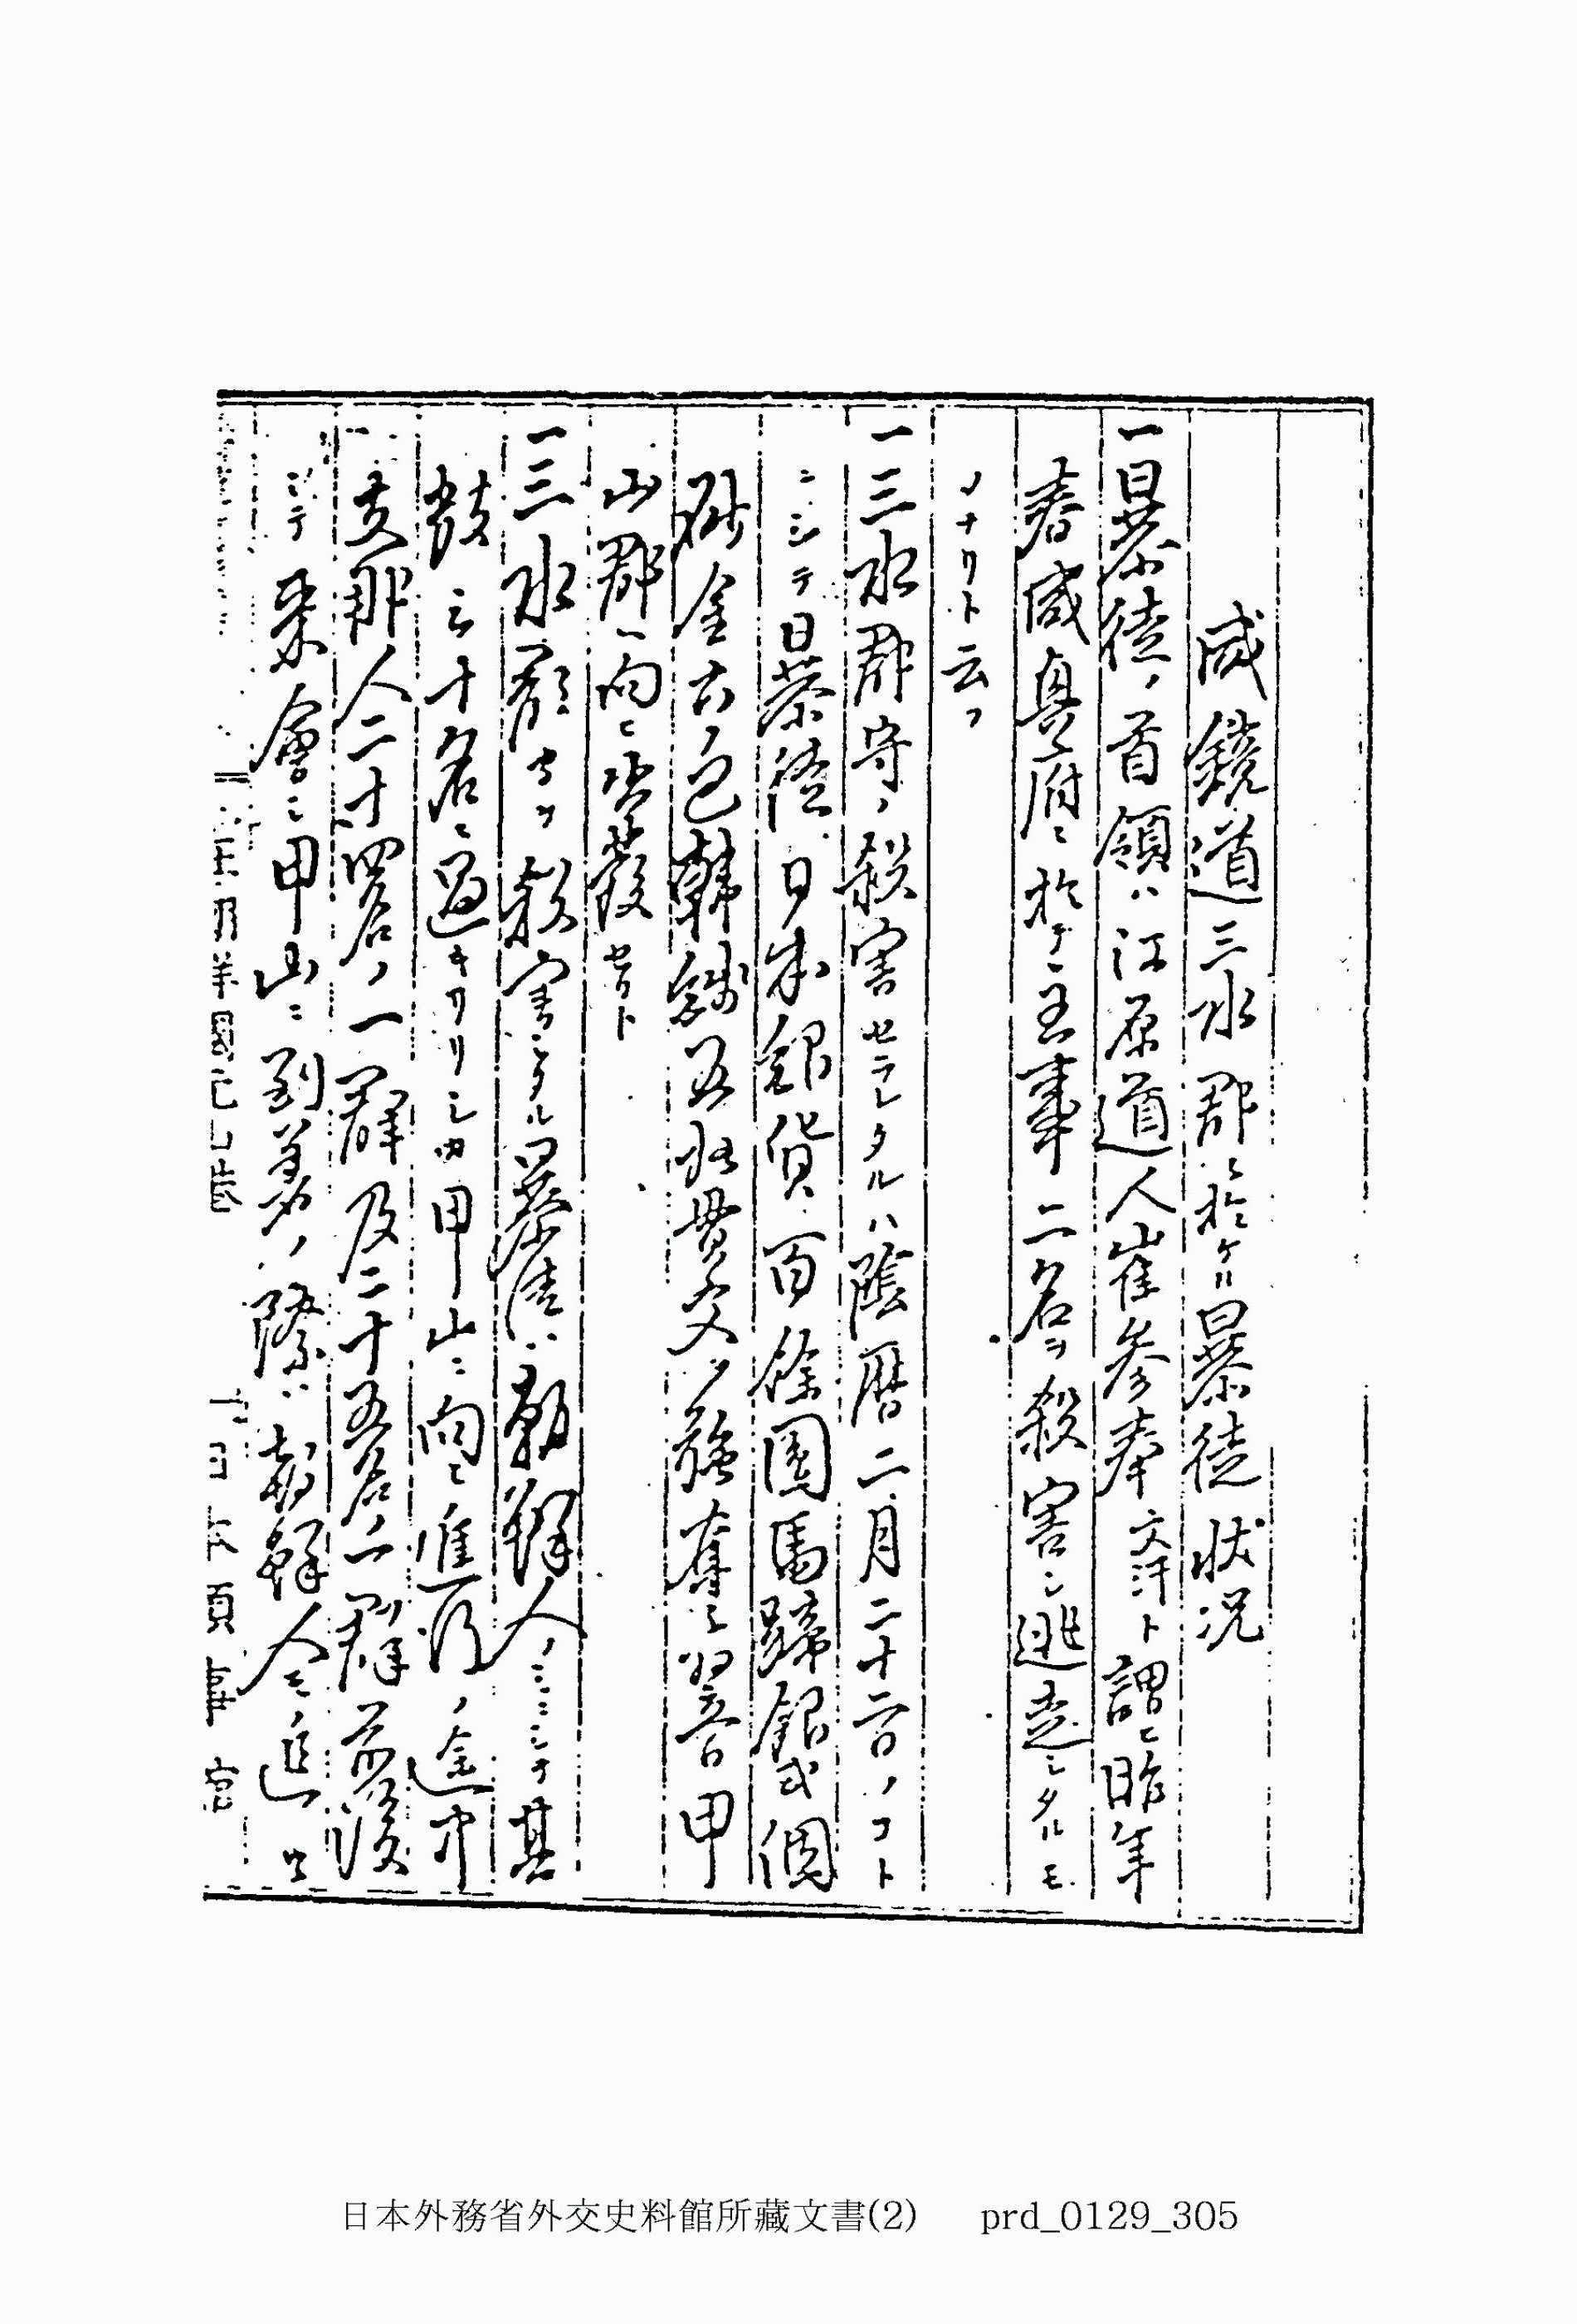 咸鏡道三水郡ニ於ケル暴徒状况
一暴徒ノ首領ハ江原道人崔参奉ト謂ヒ昨年
春咸興府ニ於テ主事二名ヲ殺害シ逃走シタルモ
ノナリト云フ
一三水郡守ノ殺害セラレタルハ陰暦二月二十二日ノコト
ニシテ暴徒ハ日本銀貨百餘圓馬蹄銀弐個
砂金六包韓錢五拾貫文ヲ強奪シ翌日甲
山郡ヘ向ヒ出發セリト
一三水郡守ヲ殺害シタル暴徒ハ朝鮮人ノミニシテ其
数三十名ニ過キサリシカ甲山ニ向ヒ進行ノ途中
支那人二十四名ノ一群及二十五名ノ一群前後
シテ来會シ甲山ニ到着ノ際ハ朝鮮人モ追
日本外務省外交史料館所藏文書(2) prd_0129_305